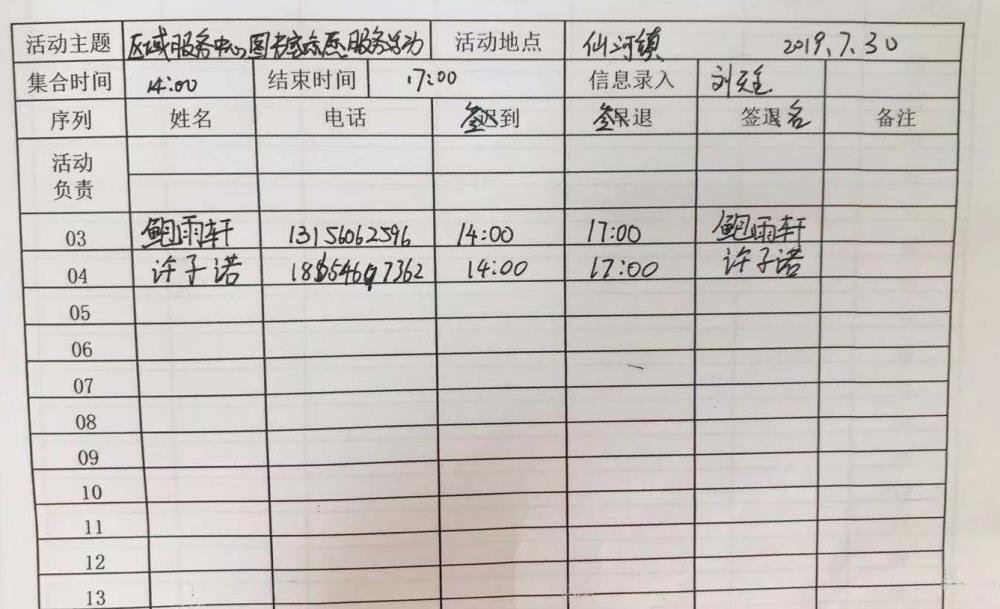 活动主题 区域服务中心图书室志愿服务活动 活动地点 仙河镇 2019.7.30
集合时间 14:00 结束时间 17:00 信息录入 刘
序列 姓名 电话 签到 签退 签名 备注
活动
负责
03 鲍雨轩 13156062596 14:00 17:00 鲍雨轩
04 许子诺 14:00 17:00 许子诺
05
06
07
08
09
10
11
12
13